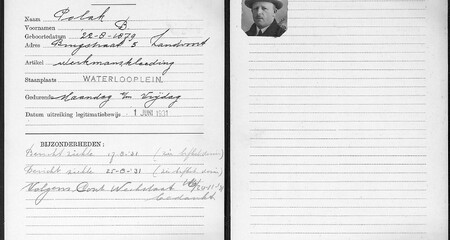 Naam Polak
Voornamen B.
Geboortedatum 22-8-1879
Adres Ringstraat 5 Zandvoort
Artikel Werkmanskleeding
Staanplaats WATERLOOPLEIN.
Gedurende Maandag t/m Vrijdag
Datum uitreiking legitimatiebewijs 1 JUNI 1931
BIJZONDERHEDEN:
Bericht ziekte 17-8-31 (zie
Bericht ziekte 25-8-31 (zie
Volgens Cont. Werkstaat
bedankt.